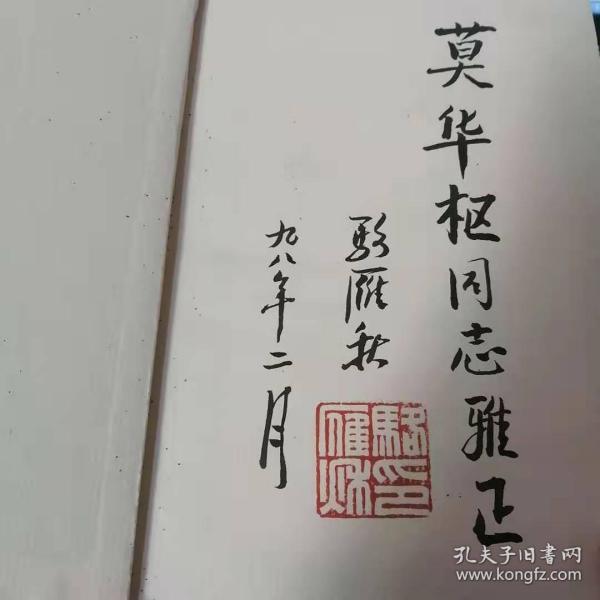 莫华枢同志雅正
骆雁秋
九八年二月
骆印雁秋
孔夫子旧书网
www.kongfz.com